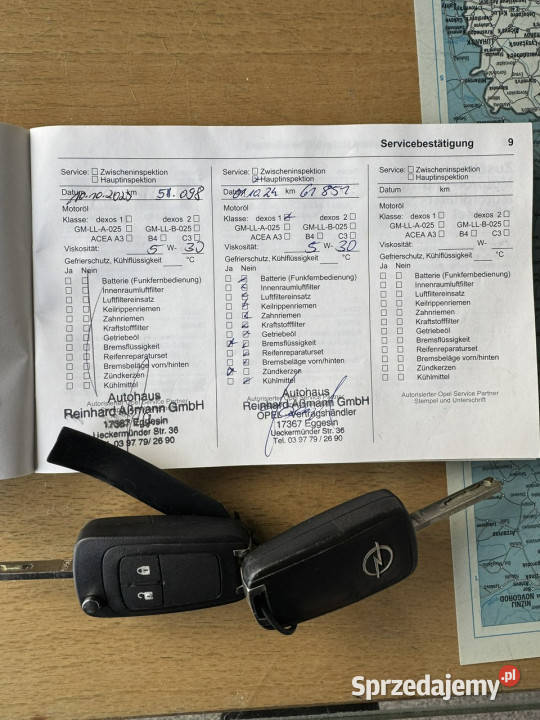 Servicebestätigung 9
Service: Zwischeninspektion
Hauptinspektion
Datum 10.10.2023 km 51.098
Motoröl
Klasse: dexos 1 dexos 2
GM-LL-A-025 GM-LL-B-025
ACEA A3 B4 C3
Viskosität: 5 W- 30
Gefrierschutz, Kühlflüssigkeit °C
Ja Nein
Batterie (Funkfernbedienung)
Innenraumluftfilter
Luftfiltereinsatz
Keilrippenriemen
Zahnriemen
Kraftstofffilter
Getriebeöl
Bremsflüssigkeit
Reifenreparaturset
Bremsbeläge vorn/hinten
Zündkerzen
Kühlmittel
Autohaus
Reinhard Aßmann GmbH
17367 Eggesin
Ueckermünder Str. 36
Tel. 03 97 79 / 26 90
Service: Zwischeninspektion
Hauptinspektion
Datum 01.10.24 km 61 851
Motoröl
Klasse: dexos 1 dexos 2
GM-LL-A-025 GM-LL-B-025
ACEA A3 B4 C3
Viskosität: 5 W- 30
Gefrierschutz, Kühlflüssigkeit °C
Ja Nein
Batterie (Funkfernbedienung)
Innenraumluftfilter
Luftfiltereinsatz
Keilrippenriemen
Zahnriemen
Kraftstofffilter
Getriebeöl
Bremsflüssigkeit
Reifenreparaturset
Bremsbeläge vorn/hinten
Zündkerzen
Kühlmittel
Autohaus
Reinhard Aßmann GmbH
OPEL-Vertragshändler
17367 Eggesin
Ueckermünder Str. 36
Tel. 03 97 79 / 26 90
Service: Zwischeninspektion
Hauptinspektion
Datum km
Motoröl
Klasse: dexos 1 dexos 2
GM-LL-A-025 GM-LL-B-025
ACEA A3 B4 C3
Viskosität: W-
Gefrierschutz, Kühlflüssigkeit °C
Ja Nein
Batterie (Funkfernbedienung)
Innenraumluftfilter
Luftfiltereinsatz
Keilrippenriemen
Zahnriemen
Kraftstofffilter
Getriebeöl
Bremsflüssigkeit
Reifenreparaturset
Bremsbeläge vorn/hinten
Zündkerzen
Kühlmittel
Autorisierter Opel Service Partner
Stempel und Unterschrift
NIŻNIJ
NOWOGRÓD
Sprzedajemy.pl